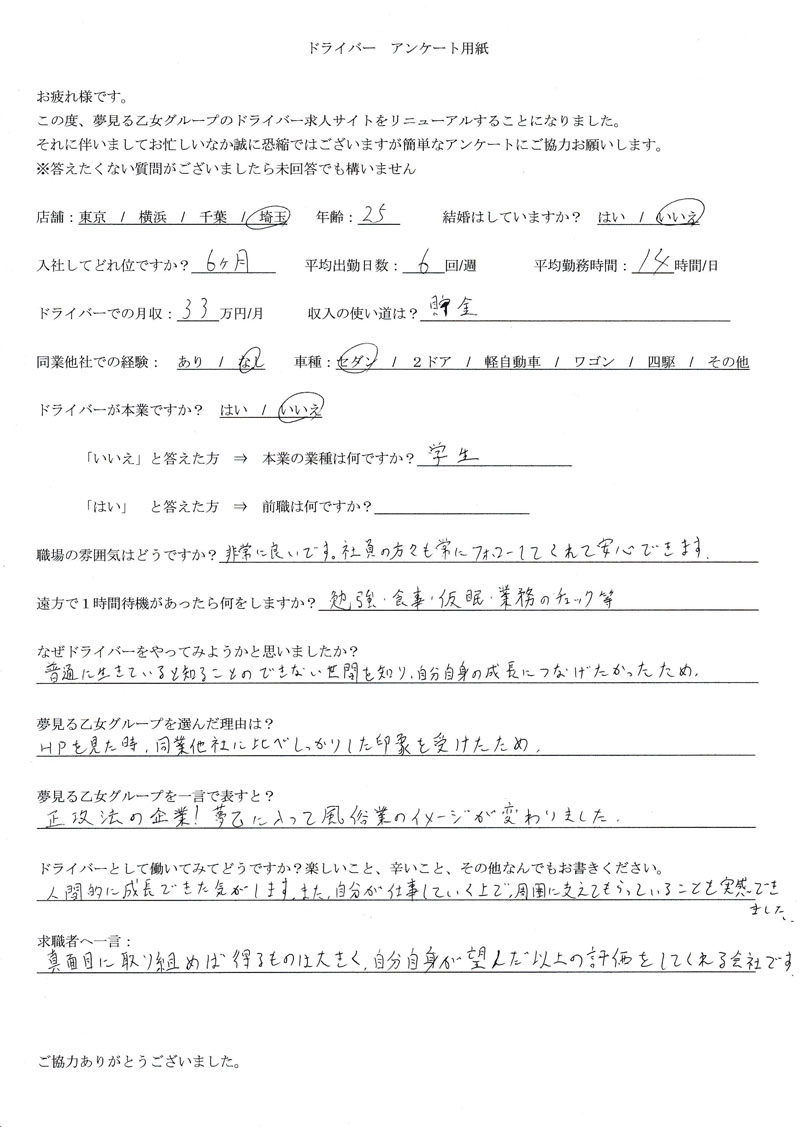 ドライバー　アンケート用紙
お疲れ様です。
この度、夢見る乙女グループのドライバー求人サイトをリニューアルすることになりました。
それに伴いましてお忙しいなか誠に恐縮ではございますが簡単なアンケートにご協力お願いします。
※答えたくない質問がございましたら未回答でも構いません
店舗：東京　/　横浜　/　千葉　/　埼玉　　年齢：25　　結婚はしていますか？　はい　/　いいえ
入社してどれ位ですか？ 6ヶ月　　平均出勤日数： 6 回/週　　平均勤務時間：14 時間/日
ドライバーでの月収： 33 万円/月　　収入の使い道は？ 貯金
同業他社での経験：　あり　/　なし　　車種：セダン　/　２ドア　/　軽自動車　/　ワゴン　/　四駆　/　その他
ドライバーが本業ですか？　はい　/　いいえ
「いいえ」と答えた方　⇒　本業の業種は何ですか？ 学生
「はい」　と答えた方　⇒　前職は何ですか？
職場の雰囲気はどうですか？ 非常に良いです。社員の方々も常にフォローしてくれて安心できます.
遠方で１時間待機があったら何をしますか？ 勉強・食事・仮眠・業務のチェック等
なぜドライバーをやってみようかと思いましたか？
普通に生きていると知ることのできない世間を知り、自分自身の成長につなげたかったため.
夢見る乙女グループを選んだ理由は？
HPを見た時、同業他社に比べしっかりした印象を受けたため.
夢見る乙女グループを一言で表すと？
正攻法の企業! 夢乙に入って風俗業のイメージが変わりました.
ドライバーとして働いてみてどうですか？楽しいこと、辛いこと、その他なんでもお書きください。
人間的に成長できた気がします。また、自分が仕事していく上で、周囲に支えてもらっていることも実感でき
ました.
求職者へ一言：
真面目に取り組めば得るものは大きく、自分自身が望んだ以上の評価をしてくれる会社です
ご協力ありがとうございました。